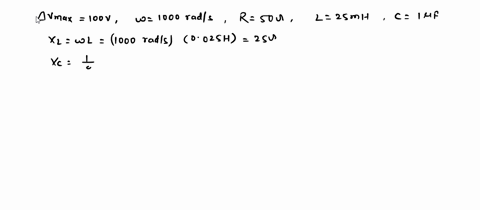 ΔVmax = 100V, ω = 1000 rad/s, R = 50Ω, L = 25mH, C = 1μF
XL = ωL = (1000 rad/s) (0.025H) = 25Ω
XC = 1/